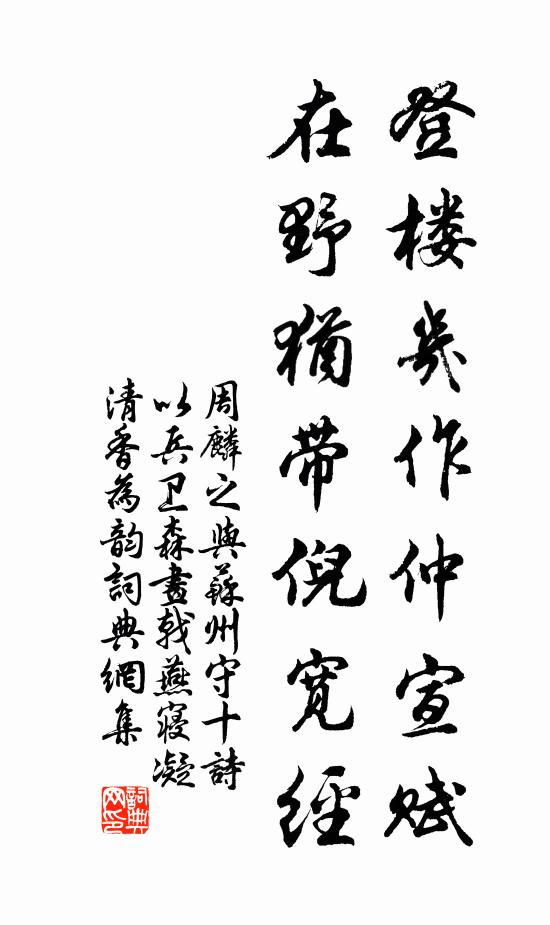 登楼幾作仲宣赋
在野犹带倪宽經
周麟之與蘇州守十詩
以兵卫森畫戟燕寝凝
清香為韵詞典網集
詞典网印